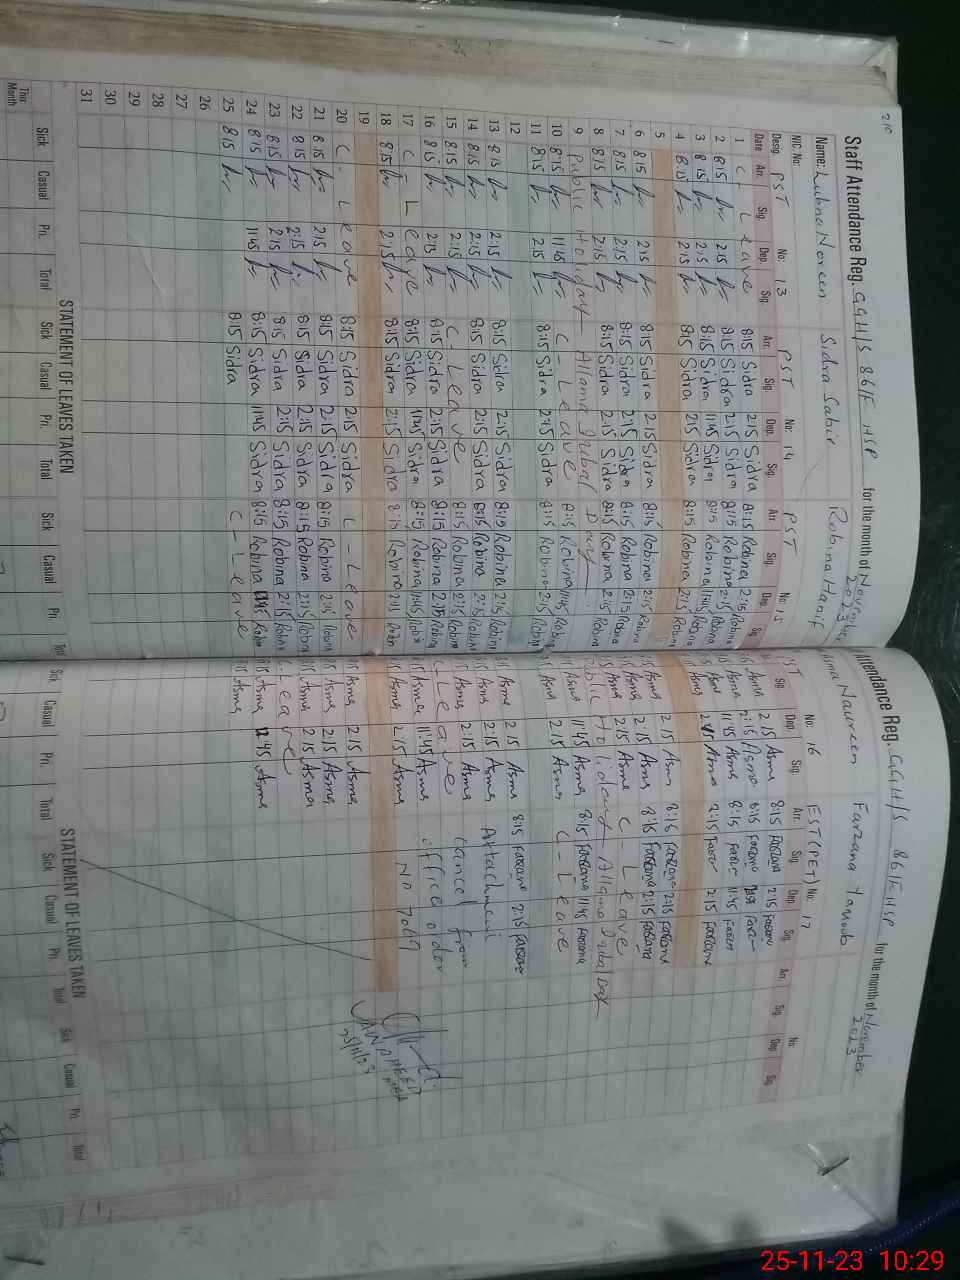 Staff Attendance Reg. GGH/S 861F HSP for the month of November 2023
Name: Lubna Noreen Sidra Sabir Robina Hanif
NIC. No:
Desig. PST No: 13 PST No: 14 PST No: 15
Date Arr. Sig. Dep. Sig. Arr. Sig. Dep. Sig. Arr. Sig. Dep. Sig
1 C - Leave 8:15 Sidra 2:15 Sidra 8:15 Robina 2:15 Robina
2 8:15 2:15 8:15 Sidra 2:15 Sidra 8:15 Robina 2:15 Robina
3 8:15 2:15 8:15 Sidra 11:45 Sidra 8:15 Robina 11:45 Robina
4 8:15 2:15 8:15 Sidra 2:15 Sidra 8:15 Robina 2:15 Robina
5
6 8:15 2:15 8:15 Sidra 2:15 Sidra 8:15 Robina 2:15 Robina
7 8:15 2:15 8:15 Sidra 2:15 Sidra 8:15 Robina 2:15 Robina
8 8:15 2:15 8:15 Sidra 2:15 Sidra 8:15 Robina 2:15 Robina
9 Public Holiday - Allama Iqbal Day
10 8:15 11:45 C Leave 8:15 Robina 11:45 Robina
11 8:15 2:15 8:15 Sidra 2:15 Sidra 8:15 Robina 2:15 Robina
12
13 8:15 2:15 8:15 Sidra 2:15 Sidra 8:15 Robina 2:15 Robina
14 8:15 2:15 8:15 Sidra 2:15 Sidra 8:15 Robina 2:15 Robina
15 8:15 2:15 C - Leave 8:15 Robina 2:15 Robina
16 8:15 2:15 8:15 Sidra 2:15 Sidra 8:15 Robina 2:15 Robina
17 C - Leave 8:15 Sidra 11:45 Sidra 8:15 Robina 11:45 Robina
18 8:15 2:15 8:15 Sidra 2:15 Sidra 8:15 Robina 2:15 Robin
19
20 C - Leave 8:15 Sidra 2:15 Sidra C - Leave
21 8:15 2:15 8:15 Sidra 2:15 Sidra 8:15 Robina 2:15 Robina
22 8:15 2:15 8:15 Sidra 2:15 Sidra 8:15 Robina 2:15 Robina
23 8:15 2:15 8:15 Sidra 2:15 Sidra 8:15 Robina 2:15 Robina
24 8:15 11:45 8:15 Sidra 11:45 Sidra 8:15 Robina Robin
25 8:15 8:15 Sidra C - Leave
26
27
28
29
30
31
STATEMENT OF LEAVES TAKEN
Sick Casual Pri. Total Sick Casual Pri. Total Sick Casual Pri
This Month
Attendance Reg. GGH/S 861F HSP for the month of November 2023
Asma Naureen Farzana Yaqoob
No: 16 EST (PET) No: 17 No:
Sig. Dep. Sig. Arr. Sig. Dep. Sig. Arr. Sig. Dep. Sig
Asma 2:15 Asma 8:15 Farzana 2:15 Farzana
Asma 2:15 Asma 8:15 Farzana Farzana
Asma 11:45 Asma 8:15 11:45
Asma Asma 8:15 2:15 Farzana
Asma 2:15 Asma 8:15 Farzana 2:15 Farzana
Asma 2:15 Asma 8:15 Farzana 2:15 Farzana
Asma 2:15 Asma C - Leave
Public Holiday - Allama Iqbal Day
Asma 11:45 Asma 8:15 Farzana 11:45 Farzana
Asma 2:15 Asma C - Leave
Asma 2:15 Asma 8:15 Farzana 2:15 Farzana
Asma 2:15 Asma Attachment
Asma 2:15 Asma cancel from
C - Leave office order
Asma 11:45 Asma No 7069
Asma 2:15 Asma
Asma 2:15 Asma
Asma 2:15 Asma
Asma 2:15 Asma
C - Leave
Asma 12:45 Asma
Asma
25/11/23
STATEMENT OF LEAVES TAKEN
Casual Pri. Total Sick Casual Pri. Total Sick Casual Pri. Total
25-11-23 10:29